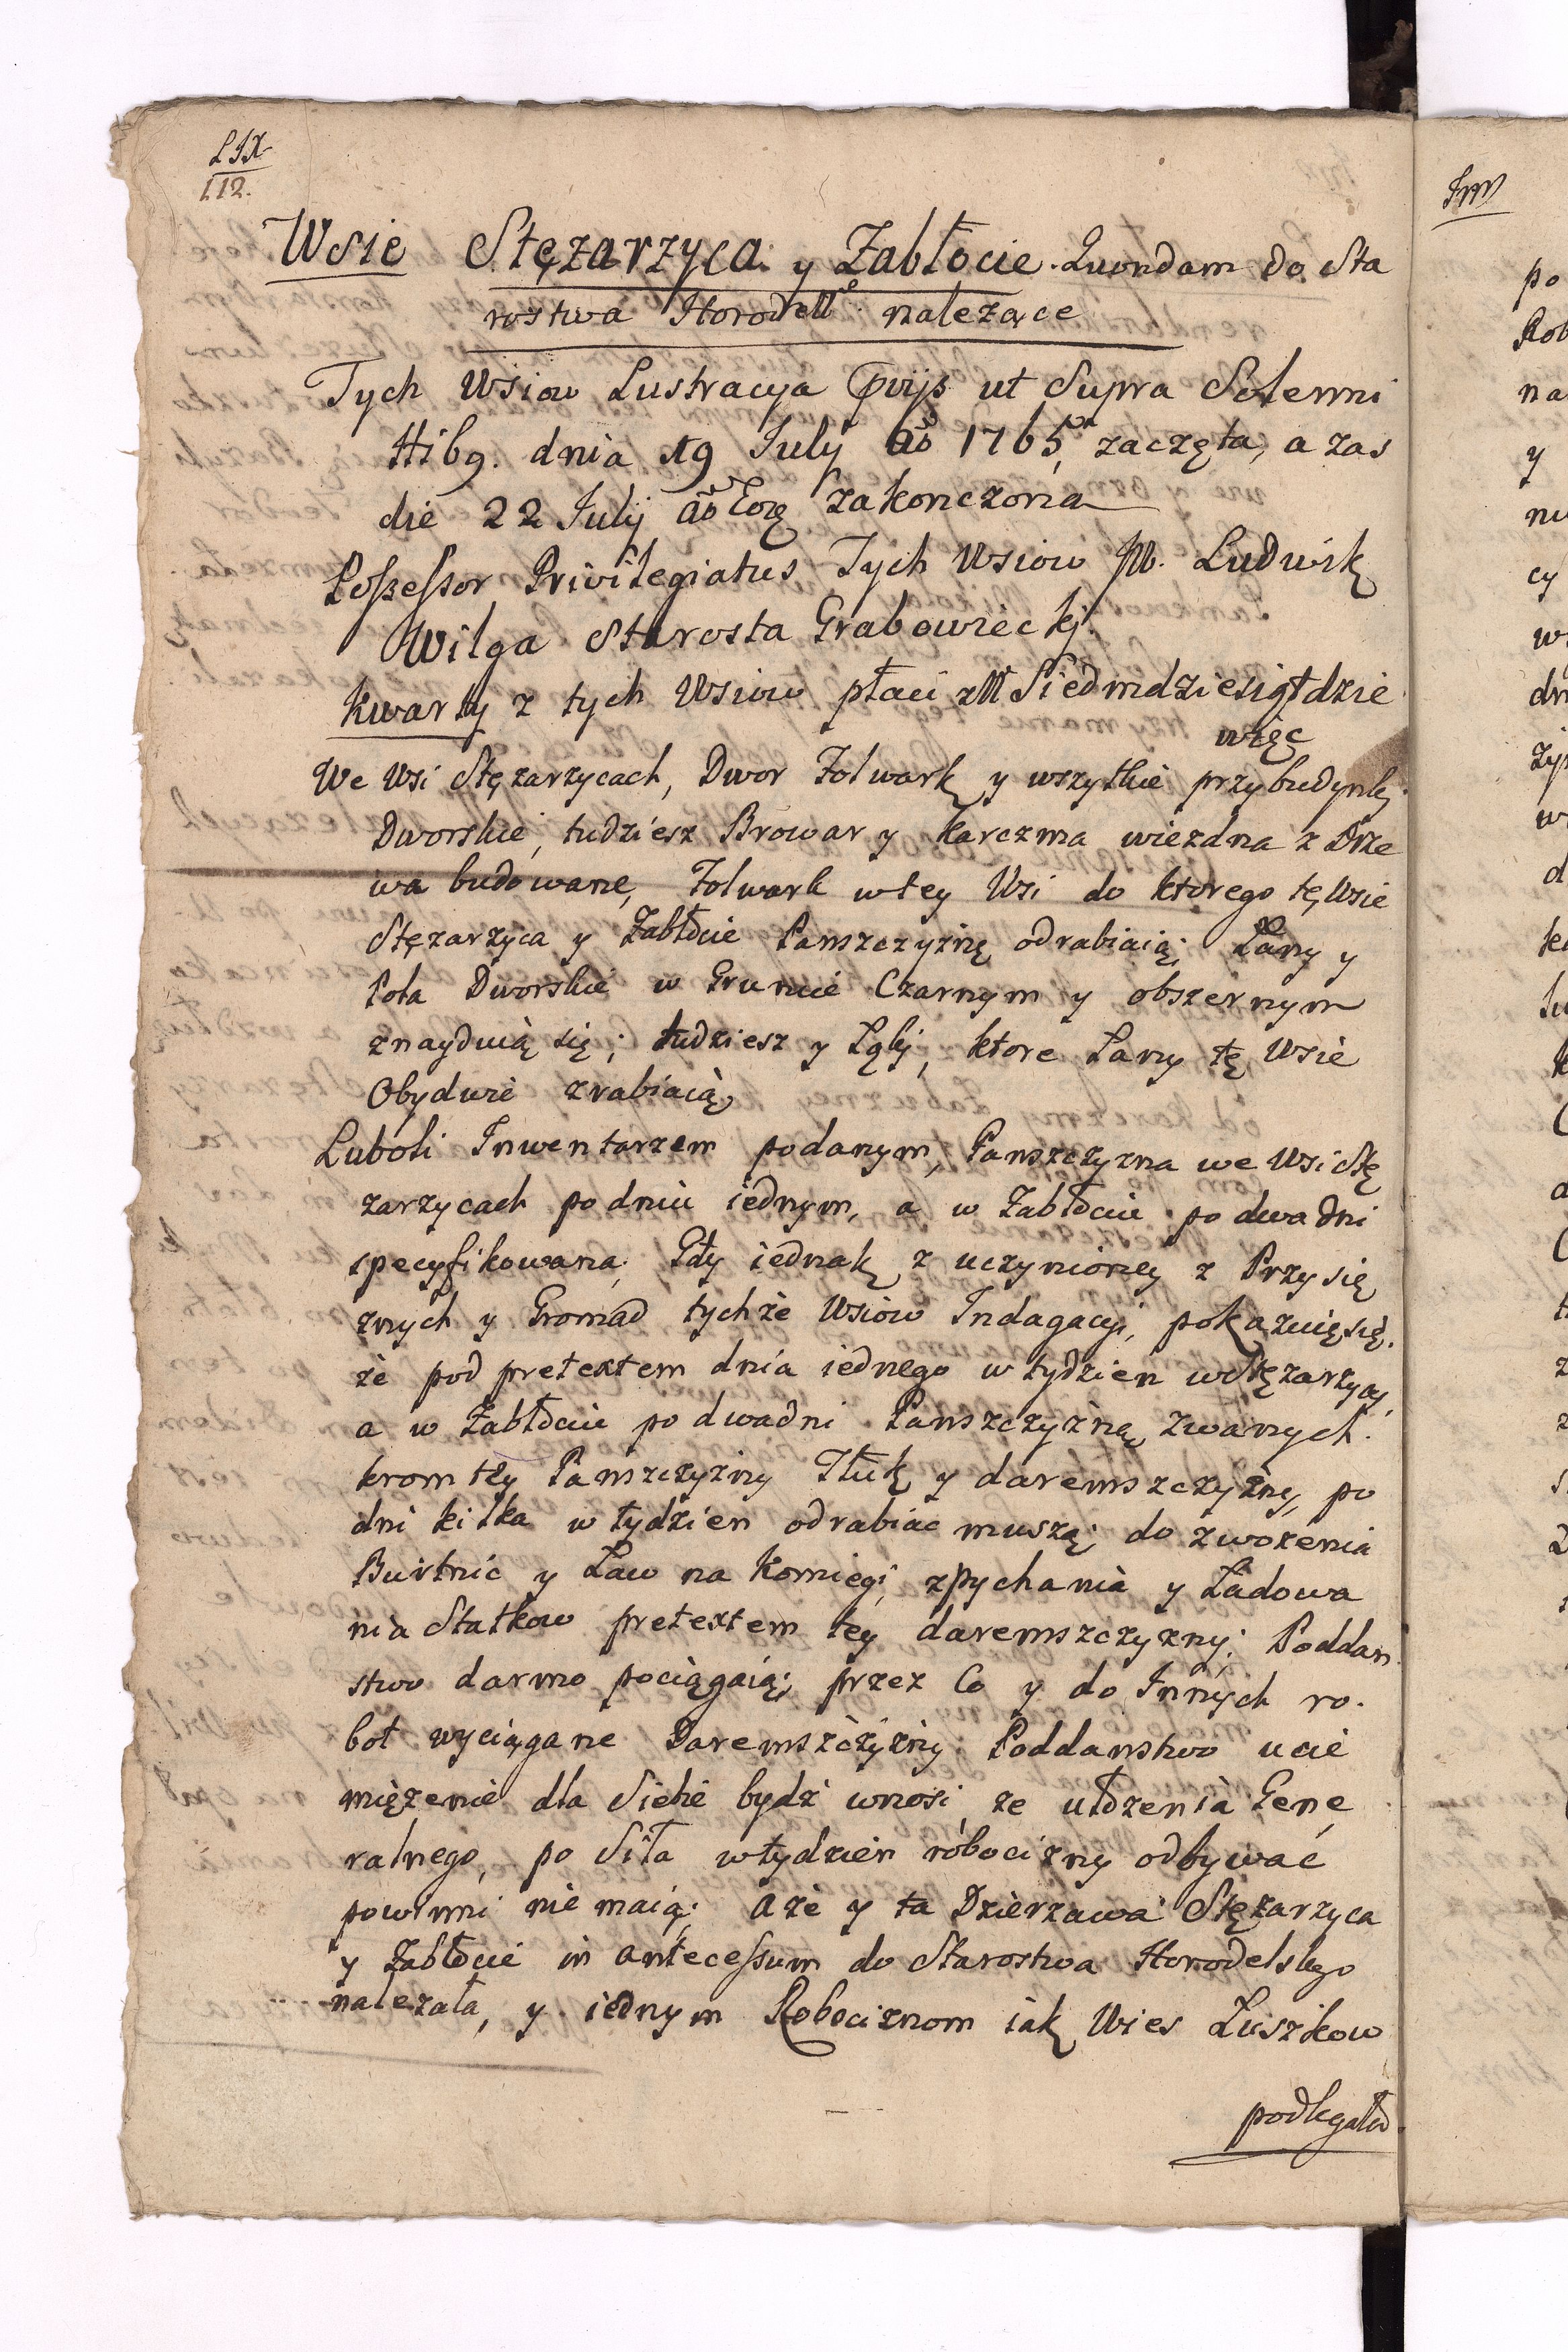 LIX
112.
Wsie Stęzarzyca y Zabłocie Quondam do Sta
rostwa Horodellᵒ nalezące
Tych Wsiow Lustracya pvijs ut Supra Solemni
Hibg. dnia 19 July aō 1765 zaczęta, a zas
die 22 July aō Eoꝗ zakonczona
Possessor Privilegiatus Tych Wsiow JW. Ludwik
Wilga Starosta Grabowiecki.
Kwarty z tych Wsiow płaci złł Siedmdziesiąt dzie
więc
We Wsi Stęzarzycach, Dwor Folwark y wszytkie przybudynki
Dworskie, tudziesz Browar y Karczma wiezdna z Drze
wa budowane, Folwark w tey Wsi do ktorego tę Wsie
Stęzarzyca y Zabłocie Panszczyznę odrabiaią; Łany y
Pola Dworskie w Gruncie Czarnym y obszernym
znayduią się; tudziesz y Łąki, ktore Łany tę Wsie
Obydwie zrabiaią
Luboli Inwentarzem podanym, Panszczyzna we Wsi Stę
zarzycach po dniu iednym, a w Zabłociu po dwa dni
specyfikowana, Gdy iednak z uczynioney z Przysię
znych y Gromad tychże Wsiow Indagacyi, pokazuię się.
że pod pretextem dnia iednego w tydzien w Stęzarzycy,
a w Zabłociu po dwa dni Panszczyzną zwanych.
krom tey Panszczyzny Tłuk y daremszczyzny, po
dni kilka w tydzien odrabiac muszą; do zwożenia
Burtnic y Ław na Komiegi, zpychania y Ładowa
nia Statkow pretextem tey daremszczyzny; Poddan
stwo darmo pociągaią; przez Co y do Innych ro.
bot wyciągane Daremszczyzny Poddanstwo ucie
miężenie dla Siebie bydź wnosi, ze utdzenia Gene
ralnego, po Siła w tydzień róbocizny odbywać
powinni nie maią; aże y ta Dzierzawa Stęzarzyca
y Zabłocie in antecessum do Starostwa Horodelskego
nalezała, y iednym Robociznom iak Wies Łuszkow
podlegała